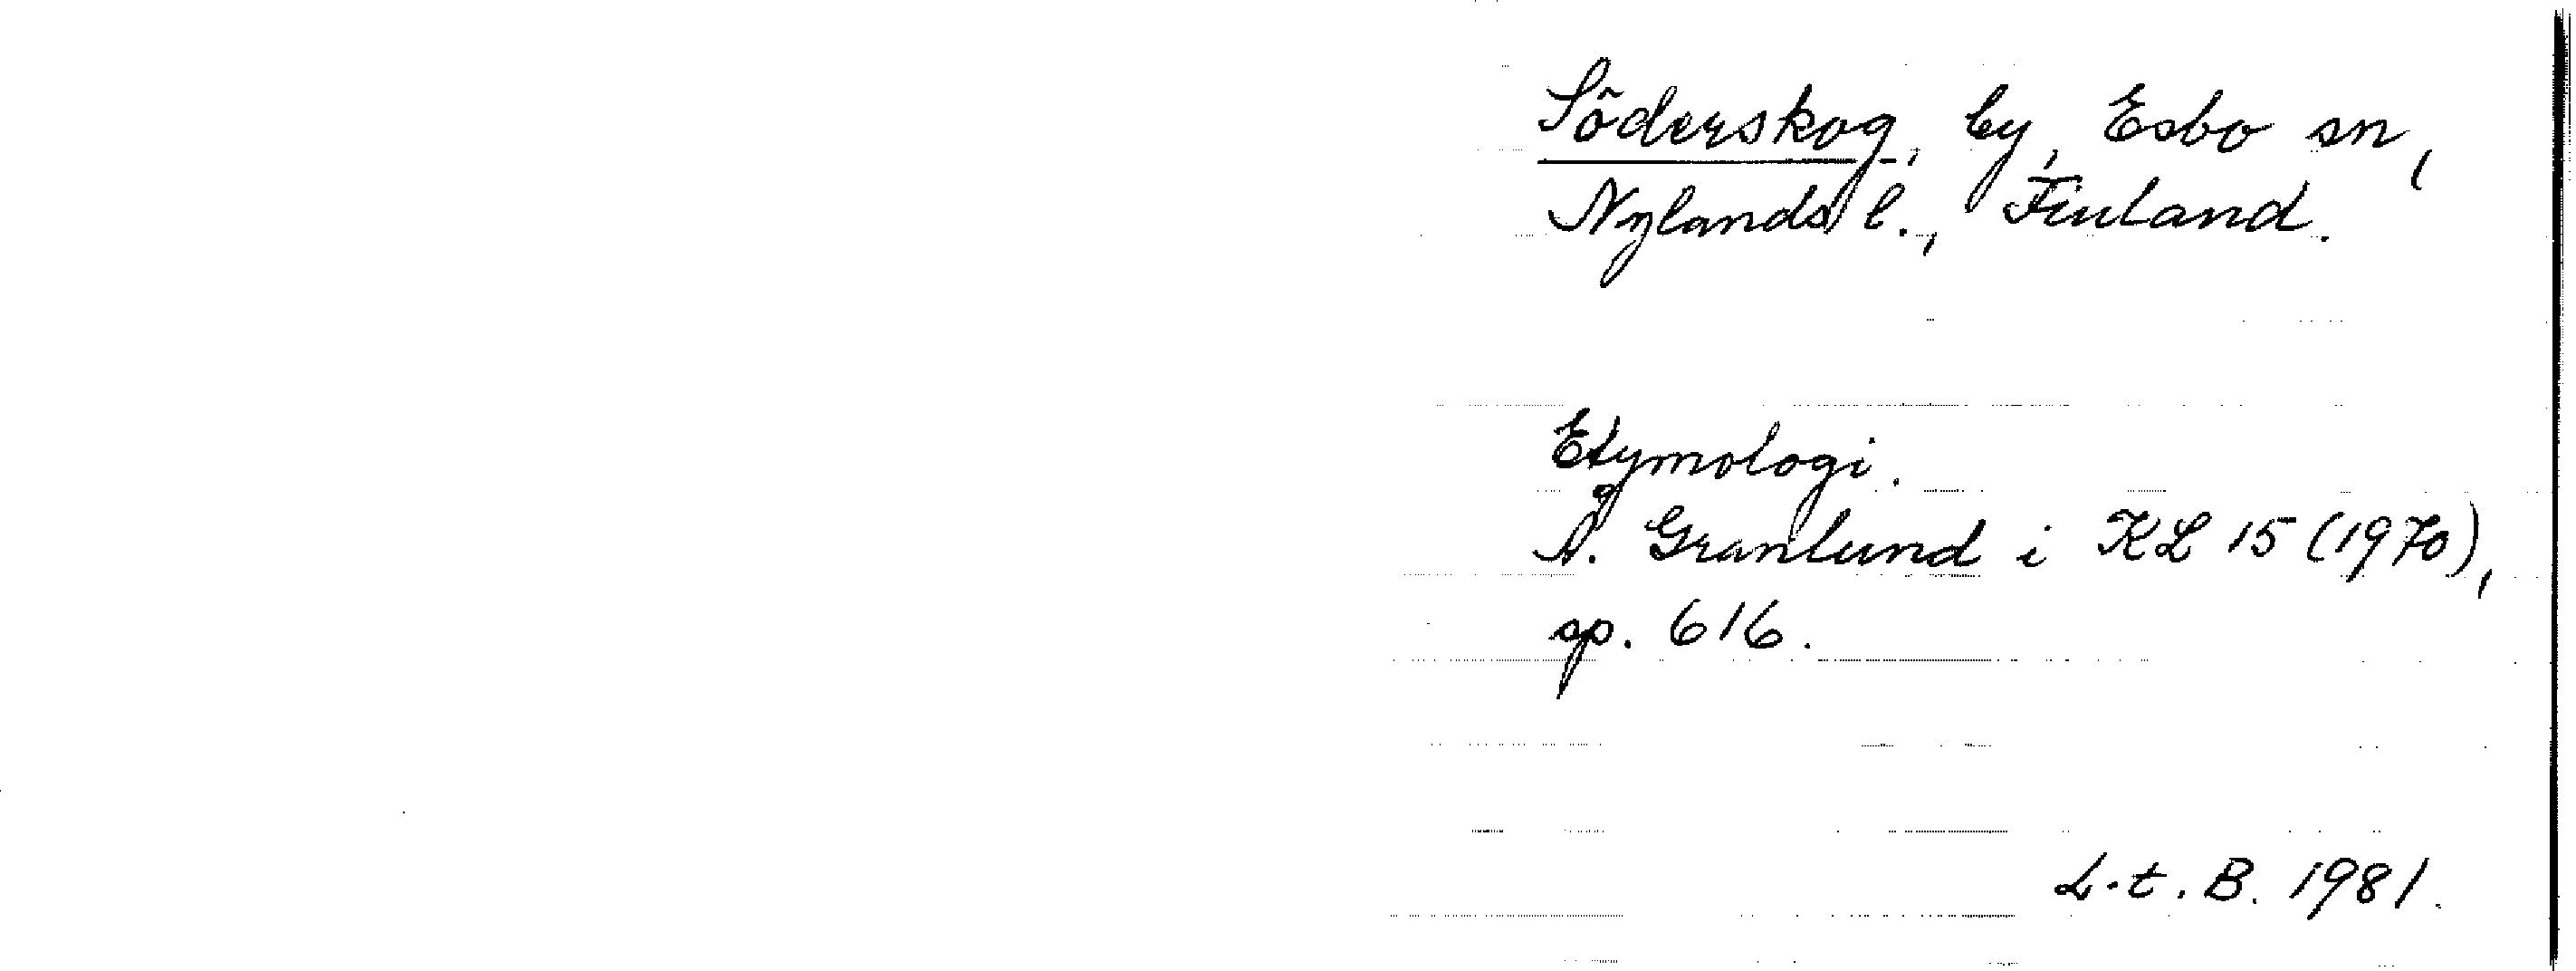 Söderskog, by, Esbo sn,
Nylands l., Finland.
Etymologi.
Å. Granlund i KL 15 (1970),
sp. 616.
L.t.B. 1981.